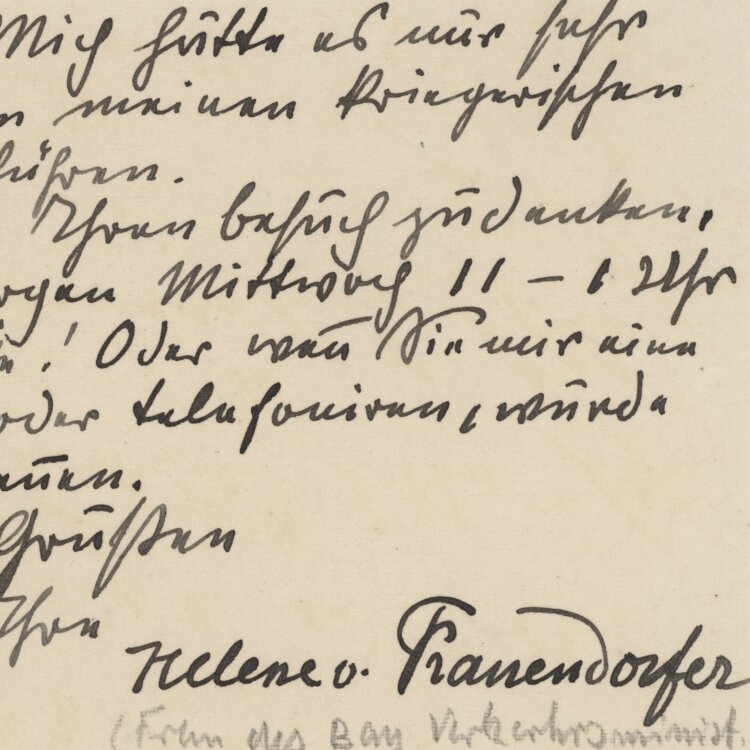 Mich hätte es nur sehr
n meinen kriegerischen
ühren.
Ihren Besuch zu danken,
rgen Mittwoch 11 – 1 Uhr
! Oder wen̄ Sie mir eine
oder telefoniren, würde
en̄en.
Grüßen
Ihre
Helene v. Frauendorfer
(Frau des Bay Verkehrsminist.